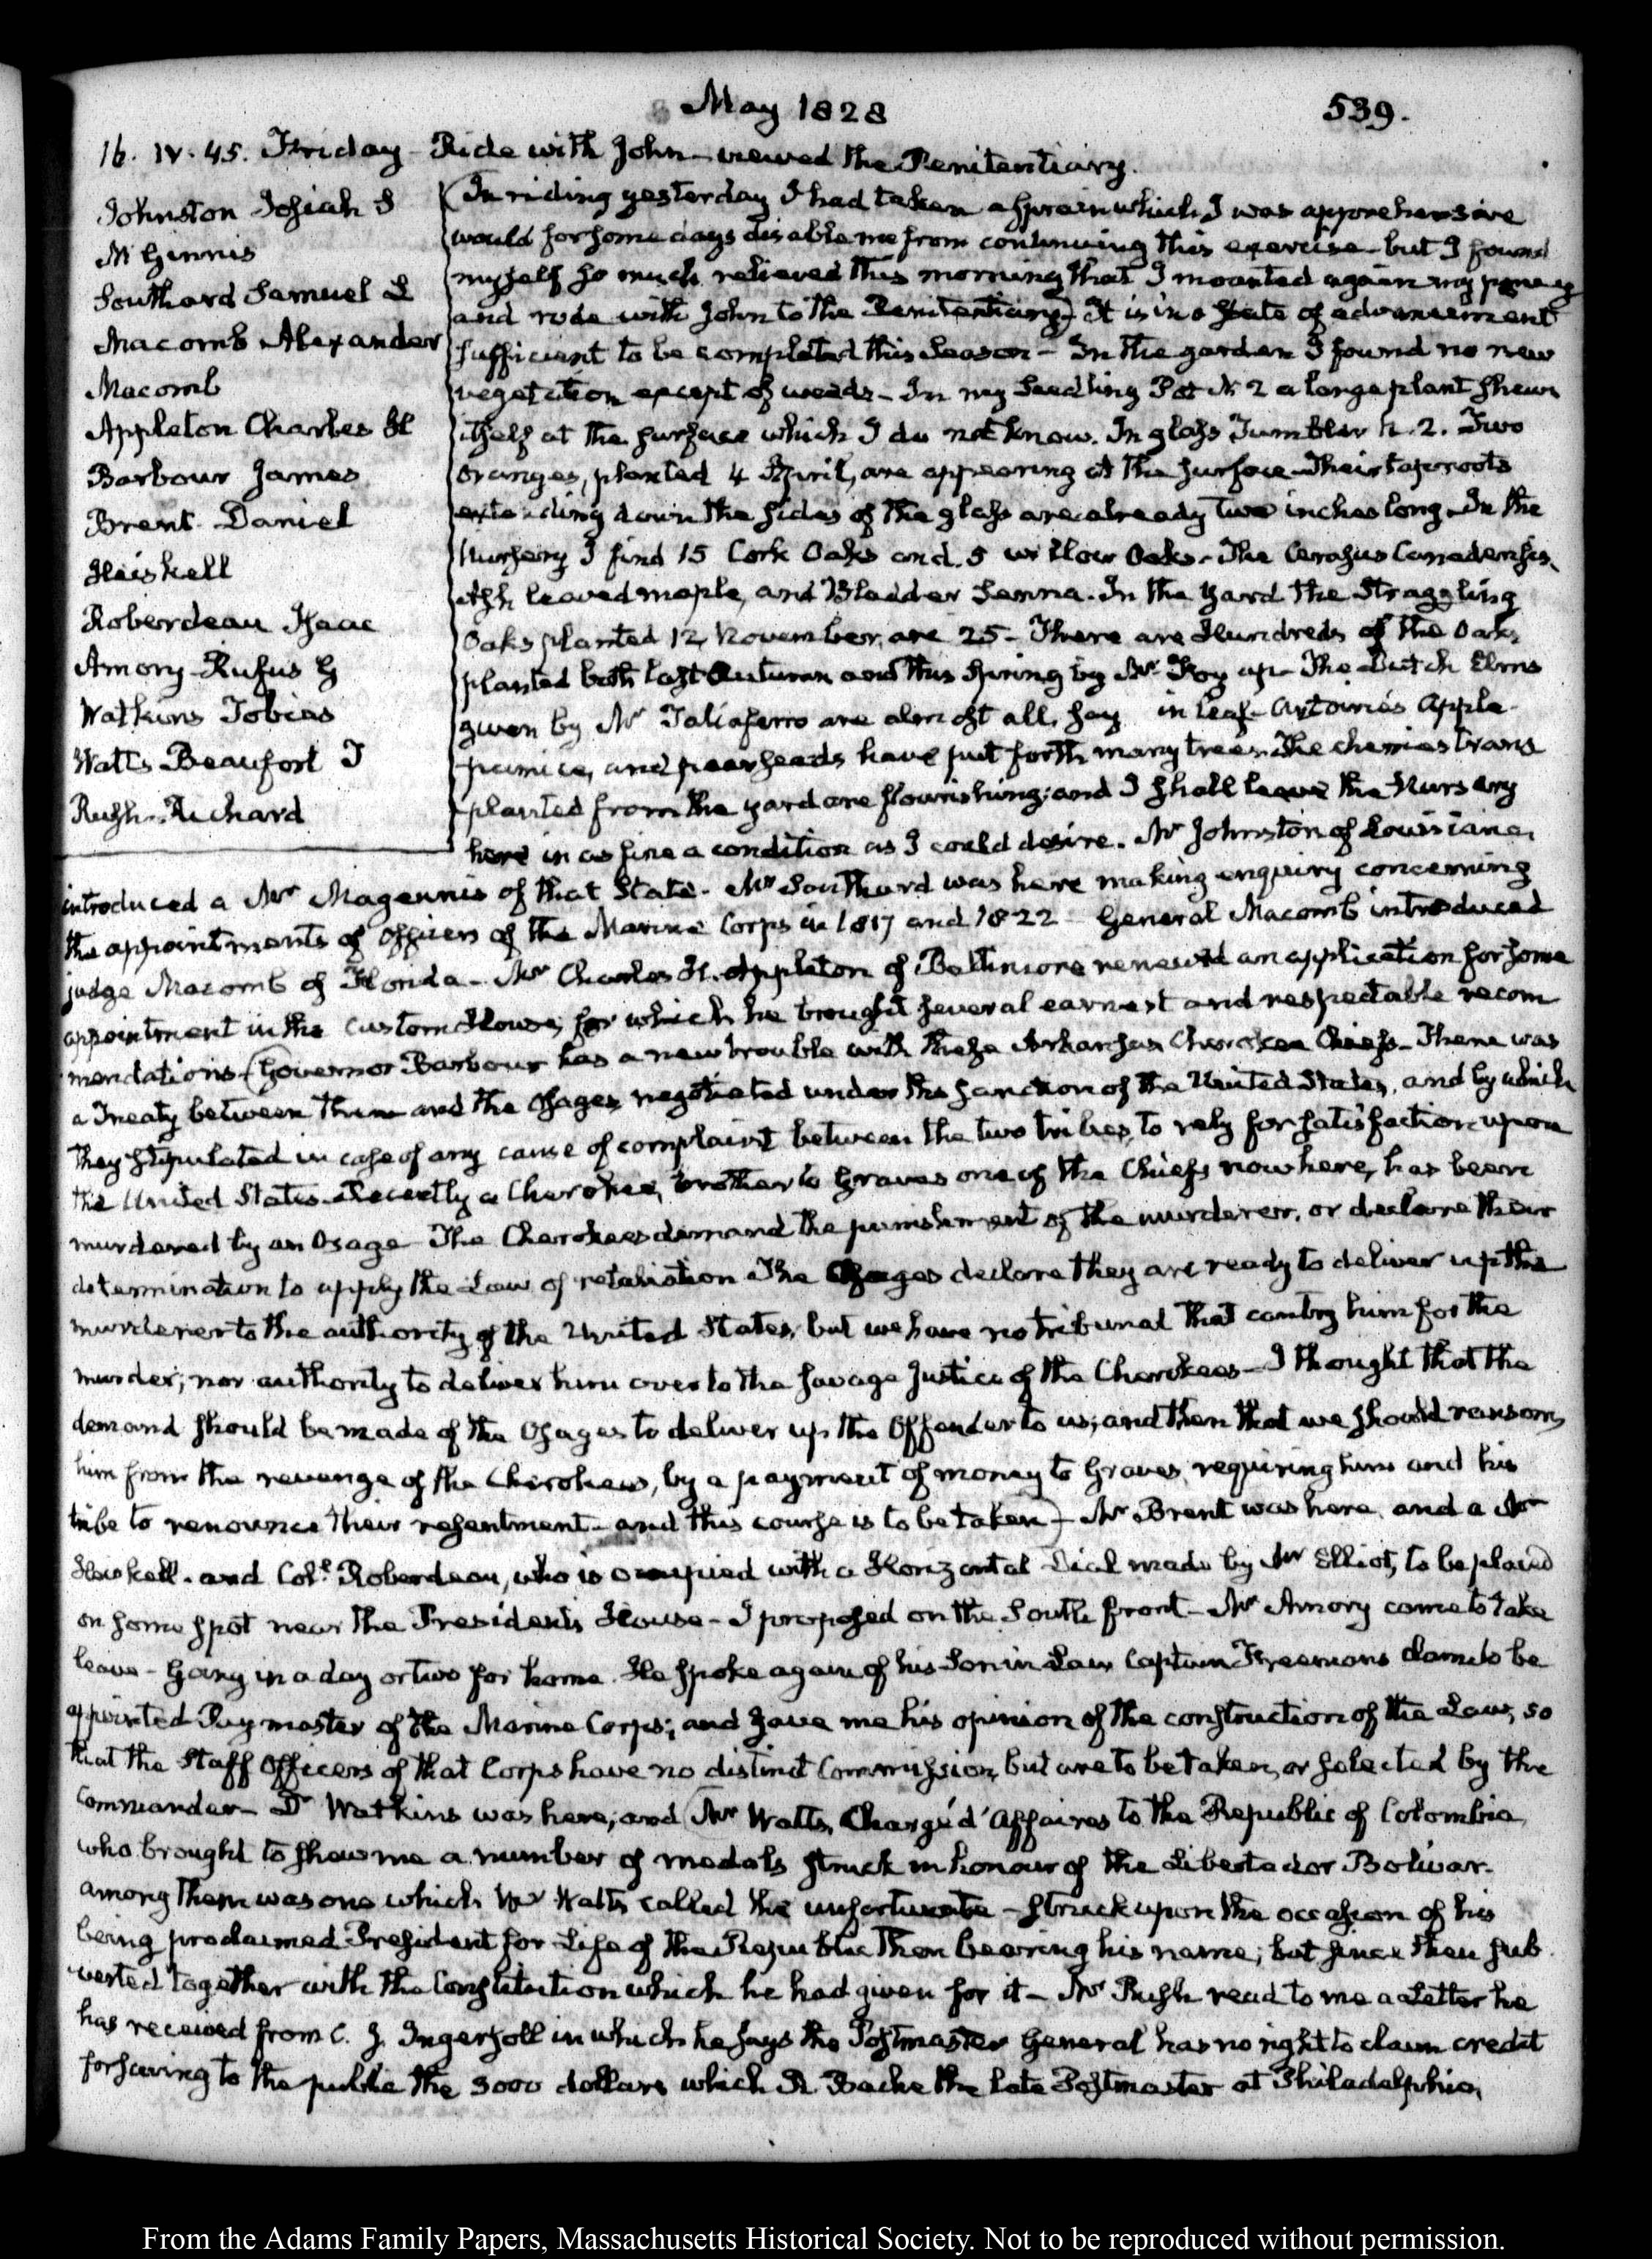 May 1828
539.
16. IV. 45. Friday - Ride with John - viewed the Penitentiary.
Johnston Josiah S
McGinnis
Southard Samuel L
Macomb Alexander
Macomb
Appleton Charles H
Barbour James
Brent Daniel
Heiskell
Roberdeau Isaac
Amory Rufus G
Watkins Tobias
Watts Beaufort T
Rush Richard
(In riding yesterday I had taken a sprain which I was apprehensive
would for some days disable me from continuing this exercise - but I found
myself so much relieved this morning that I mounted again my poney
and rode with John to the Penitentiary) It is in a state of advancement
sufficient to be completed this Season - In the garden I found no new
vegetation except of weeds - In my Seedling Pot N. 2 a large plant shews
itself at the surface which I do not know. In glass Tumbler n. 2. Two
oranges, planted 4 April, are appearing at the surface - Their taproots
extending down the sides of the glass are already two inches long - In the
Nursery I find 15 Cork Oaks and 5 willow Oaks - The Cerasus Canadensis,
Ash leaved maple, and Bladder Senna. In the yard the Straggling
Oaks planted 12 November, are 25 - There are Hundreds of the Oaks
planted both last Autumn and this Spring by Mr Foy up - The Dutch Elms
given by Mr Taliaferro are almost all, say in leaf - Antoine's apple
pumice, and pear seeds have put forth many trees. The cherries trans
planted from the yard are flourishing; and I shall leave the Nursery
here in as fine a condition as I could desire. Mr Johnston of Louisiana,
introduced a Mr Magennis of that State - Mr Southard was here making enquiry concerning
the appointments of officers of the Marine Corps in 1817 and 1822 - General Macomb introduced
judge Macomb of Florida - Mr Charles H. Appleton of Baltimore renewed an application for some
appointment in the Custom House, for which he brought several earnest and respectable recom
mendations - (Governor Barbour has a new trouble with these Arkansas Cherokee Chiefs - There was
a Treaty between them and the Osages negotiated under the sanction of the United States, and by which
they stipulated in case of any cause of complaint between the two tribes, to rely for satisfaction upon
the United States - Recently a Cherokee, brother to Graves one of the Chiefs now here, has been
murdered by an Osage - The Cherokees demand the punishment of the murderer, or declare their
determination to apply the Law of retaliation - The Osages declare they are ready to deliver up the
murderer to the authority of the United States, but we have no tribunal that can try him for the
murder; nor authority to deliver him over to the savage justice of the Cherokees - I thought that the
demand should be made of the Osages to deliver up the Offender to us; and then that we should ransom
him from the revenge of the Cherokees, by a payment of money to Graves, requiring him and his
tribe to renounce their resentment - and this course is to be taken) - Mr Brent was here, and a Mr
Heiskell. and Coll. Roberdeau, who is occupied with a Horizontal Dial made by Mr Elliot, to be placed
on some spot near the President's House - I proposed on the South front - Mr Amory came to take
leave - Going in a day or two for home. He spoke again of his Son in Law Captain Freeman's claim to be
appointed Paymaster of the Marine Corps; and gave me his opinion of the construction of the Law, so
that the Staff Officers of that Corps have no distinct Commission, but are to be taken, or selected by the
Commander - Dr Watkins was here; and (Mr Watts, Chargé d'Affaires to the Republic of Colombia,
who brought to shew me a number of medals struck in honour of the Libertador Bolivar.
among them was one which Mr Watts called the unfortunate - struck upon the occasion of his
being proclaimed President for Life of the Republic then bearing his name; but since then sub
verted together with the Constitution which he had given for it - Mr Rush read to me a Letter he
has received from C. J. Ingersoll in which he says the Postmaster General has no right to claim credit
for saving to the public the 3000 dollars which R Bache the late Postmaster at Philadelphia,
From the Adams Family Papers, Massachusetts Historical Society. Not to be reproduced without permission.